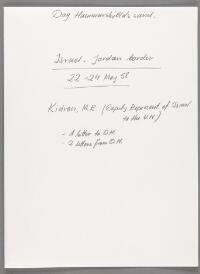 Dag Hammarskjölds saml.
Israel - Jordan border
22-24 May 58
Kidron, M.R. (Deputy Represent of Israel
to the U.N.)
- 1 letter to D.H.
- 2 letters from D.H.